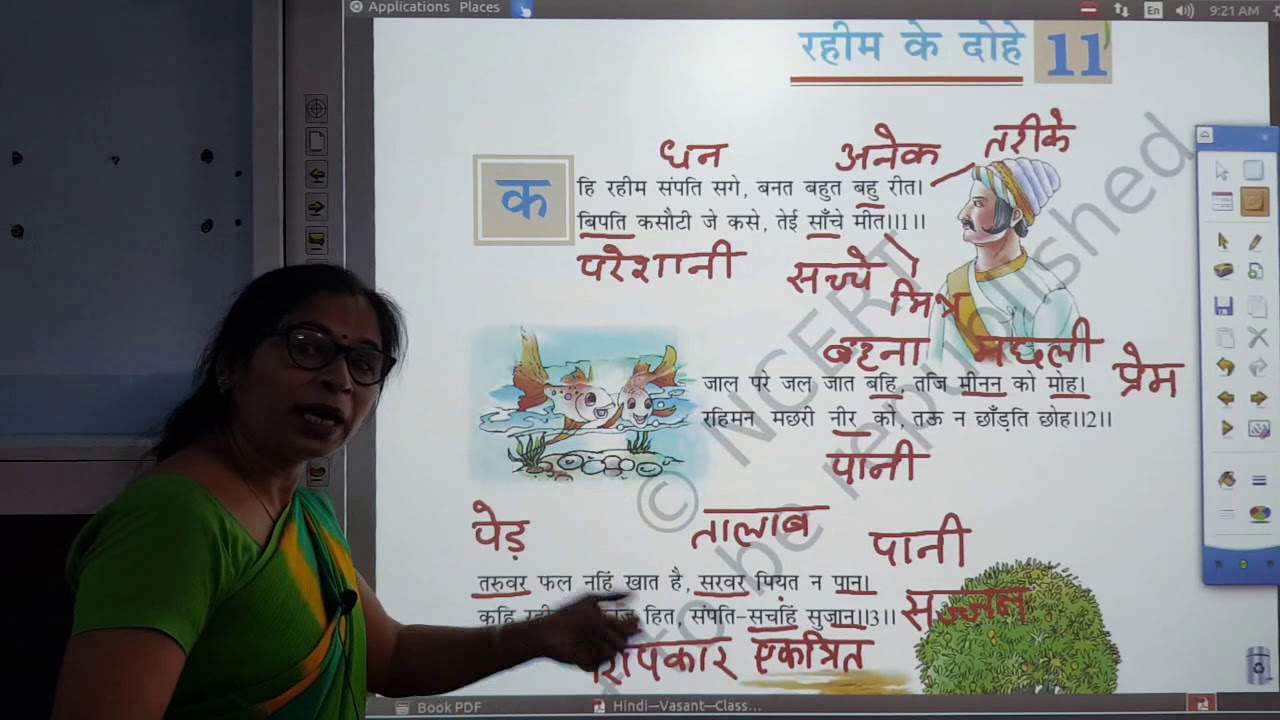 Applications Places
En 9:21 AM
रहीम के दोहे 11
धन अनेक तरीके
क
हि रहीम संपति सगे, बनत बहुत बहु रीत।
बिपति कसौटी जे कसे, तेई साँचे मीत।।1।।
परेशानी सच्चे मित्र
बहना मछली प्रेम
जाल परे जल जात बहि, तजि मीनन को मोह।
रहिमन मछरी नीर को, तऊ न छाँड़ति छोह।।2।।
पानी
पेड़ तालाब पानी
तरुवर फल नहिं खात है, सरवर पियत न पान।
कहि हित, संपति-सचहिं सुजान।।3।।
सज्जन
एकत्रित
© NCERT
to be republished
Book PDF
Hindi—Vasant—Class...